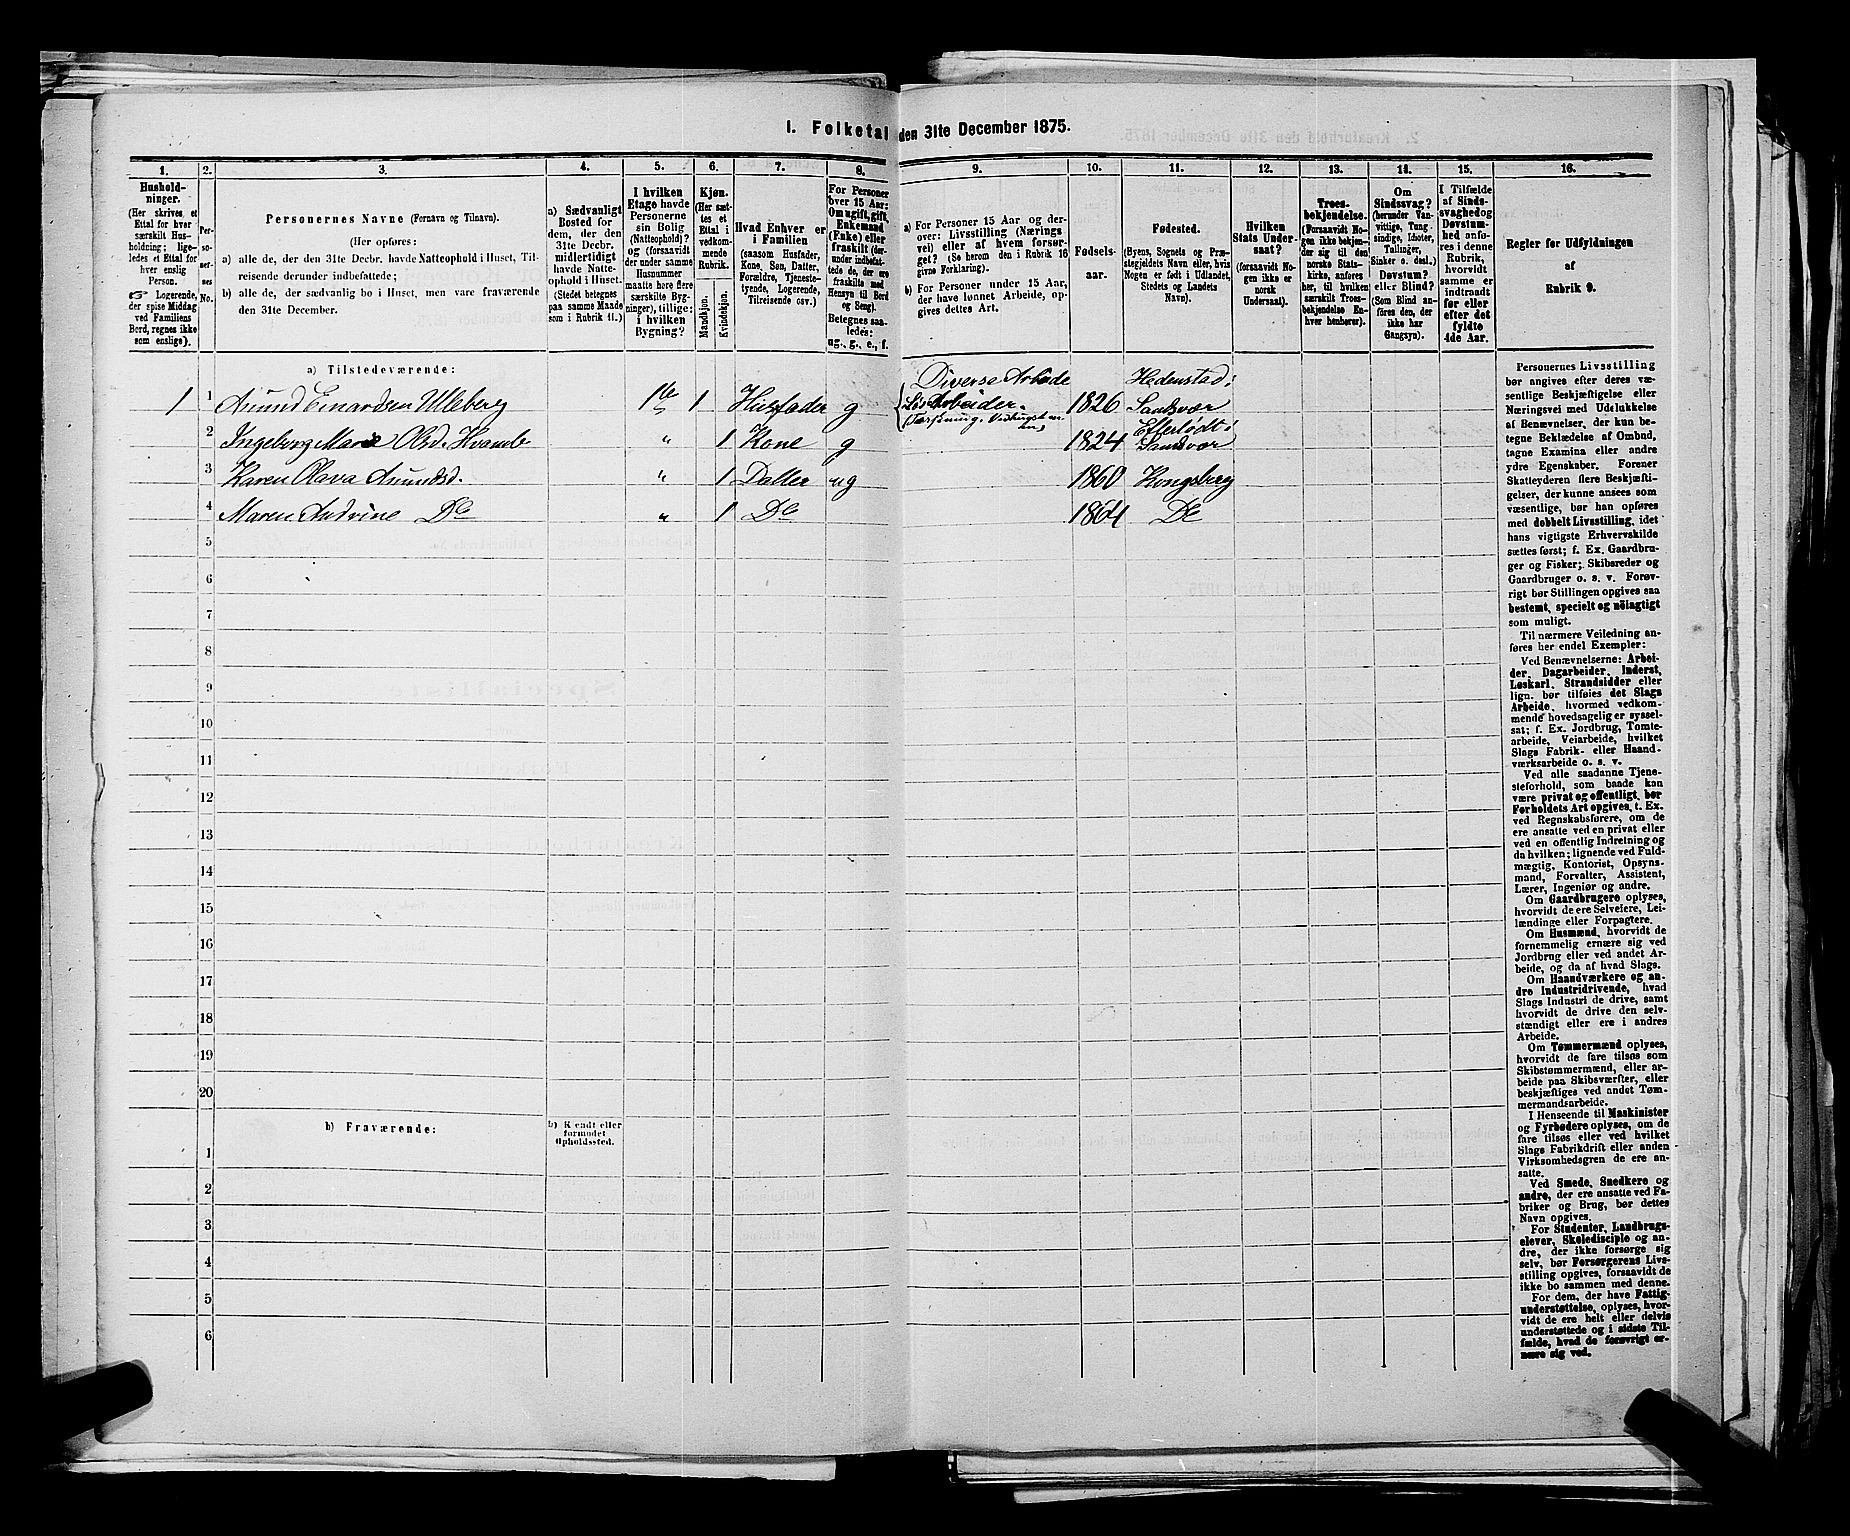 I. Folketal den 31te December 1875.
1.
Hushold-
ninger.
(Her skrives et
Ettal for hver
særskilt Hus-
holdning; lige-
ledes et Ettal for
hver enslig
Person.
☞ Logerende,
der spise Middag
ved Familiens
Bord, regnes ikke
som enslige).
2.
Per-
so-
ner-
nes
No.
3.
Personernes Navne (Fornavn og Tilnavn).
(Her opføres:
a) alle de, der den 31te Decbr. havde Natteophold i Huset, Til-
reisende derunder indbefattede;
b) alle de, der sædvanlig bo i Huset, men vare fraværende
den 31te December.
4.
a) Sædvanligt
Bosted for
dem, der den
31te Decbr.
midlertidigt
havde Natte-
ophold i Huset.
(Stedet betegnes
paa samme Maade
som i Rubrik 11.)
5.
I hvilken
Etage havde
Personerne
sin Bolig
(Natteophold)?
og (forsaavidt
der under samme
Husnummer
maatte høre flere
særskilte Byg-
ninger), tillige:
i hvilken
Bygning?
6.
Kjøn.
(Her sæt-
tes et
Ettal i
vedkom-
mende
Rubrik.
Mandkjøn.
Kvindekjøn.
7.
Hvad Enhver er
i Familien
(saasom Husfader,
Kone, Søn, Datter,
Forældre, Tjeneste-
tyende, Logerende,
Tilreisende osv.)
8.
For Personer
over 15 Aar:
Om ugift, gift,
Enkemand
(Enke) eller
fraskilt (her-
under indbefat-
tede de, der ere
fraskilte med
Hensyn til Bord
og Seng).
Betegnes saa-
ledes:
ug., g., e., f.
9.
a) For Personer 15 Aar og der-
over: Livsstilling (Nærings
vei) eller af hvem forsør-
get? (Se herom den i Rubrik 16
givne Forklaring).
b) For Personer under 15 Aar,
der have lønnet Arbeide, op-
gives dettes Art.
10.
Fødsels-
aar.
11.
Fødested.
(Byens, Sognets og Præ-
stegjeldets Navn eller, hvis
Nogen er født i Udlandet,
Stedets og Landets
Navn).
12.
Hvilken
Stats Under-
saat?
(forsaavidt No-
gen ikke er
norsk
Undersaat).
13.
Troes-
bekjendelse.
(Forsaavidt No-
gen ikke bekjen-
der sig til den
norske Stats-
kirke, anføres
her, til hvilken
særskilt Troes-
bekjendelse En-
hver henhører).
14.
Om
Sindssvag?
(herunder Van-
vittige, Tung-
sindige, Idioter,
Tullinger,
Sinker o. desl.)
Døvstum?
eller Blind?
(Som Blind an-
føres den, der
ikke har
Gangsyn).
15.
I Tilfælde
af Sinds-
svaghed og
Døvstum-
hed anfø-
res i denne
Rubrik,
hvorvidt
samme er
indtraadt
før eller
efter det
fyldte
4de Aar.
16.
Regler for Udfyldningen
af
Rubrik 9.
a) Tilstedeværende:
Diverse Arbeide Hedenstad i
1 1 Amund Einardsen Ulleberg 1te 1 Husfader g Løs Arbeider. 1826 Sandsvær
Efterlødt i
2 Ingeborg Marie Olsd. Hvamb " 1 Kone g 1824 Sandsvær
3 Karen Olava Amundsd. " 1 Datter ug 1860 Kongsberg
4 Maren Andrine Do " 1 Do 1864 Do
5
6
7
8
9
10
11
12
13
14
15
16
17
18
19
20
b) Fraværende:
b) Kjendt eller
formodet
Opholdssted.
1
2
3
4
5
6
Personernes Livsstilling
bør angives efter deres væ-
sentlige Beskjæftigelse eller
Næringsvei med Udelukkelse
af Benævnelser, der kun be-
tegne Beklædelse af Ombud,
tagne Examina eller andre
ydre Egenskaber. Forener
Skatteyderen flere Beskjæfti-
gelser, der kunne ansees som
væsentlige, bør han opføres
med dobbelt Livsstilling, idet
hans vigtigste Erhvervskilde
sættes først; f. Ex. Gaardbru-
ger og Fisker; Skibsreder og
Gaardbruger o. s. v. Forøv-
rigt bør Stillingen opgives saa
bestemt, specielt og nöiagtigt
som muligt.
Til nærmere Veiledning an-
føres her endel Exempler:
Ved Benævnelserne: Arbei-
der, Dagarbeider, Inderst,
Løskarl, Strandsidder eller
lign. bør tilføies det Slags
Arbeide, hvormed vedkom-
mende hovedsagelig er syssel-
sat; f. Ex. Jordbrug, Tomte-
arbeide, Veiarbeide, hvilket
Slags Fabrik- eller Haand-
værksarbeide o. s. v.
Ved alle saadanne Tjene-
steforhold, som baade kan
være privat og offentligt, bør
Forholdets Art opgives, t. Ex.
ved Regnskabsførere, om de
ere ansatte ved en privat eller
ved en offentlig Indretning og
da hvilken; lignende ved Fuld-
mægtig, Kontorist, Opsyns-
mand, Forvalter, Assistent,
Lærer, Ingeniør og andre.
Om Gaardbrugere oplyses,
hvorvidt de ere Selveiere, Lei-
lændinge eller Forpagtere.
Om Husmænd, hvorvidt de
fornemmelig ernære sig ved
Jordbrug eller ved andet Ar-
beide, og da af hvad Slags.
Om Haandværkere og an-
dre Industridrivende, hvad
Slags Industri de drive, samt
hvorvidt de drive den selv-
stændigt eller ere i andres
Arbeide.
Om Tømmermænd oplyses,
hvorvidt de fare tilsøs som
Skibstømmermænd, eller ar-
beide paa Skibsværfter, eller
beskjæftiges ved andet Tøm-
mermandsarbeide.
I Henseende til Maskinister
og Fyrbødere oplyses, om de
fare tilsøs eller ved hvilket
Slags Fabrikdrift eller anden
Virksomhedsgren de ere an-
satte.
Ved Smede, Snedkere og
andre, der ere ansatte ved Fa-
briker og Brug, bør dettes
Navn opgives.
For Studenter, Landbrugs-
elever, Skoledisciple og an-
dre, der ikke forsørge sig
selv, bør Forsørgerens Livs-
stilling opgives, forsaavidt de
ikke bo sammen med denne.
For dem, der have Fattig-
understøttelse, oplyses, hvor-
vidt de ere helt eller delvis
understøttede og i sidste Til-
fælde, hvad de forøvrigt er-
nære sig ved.